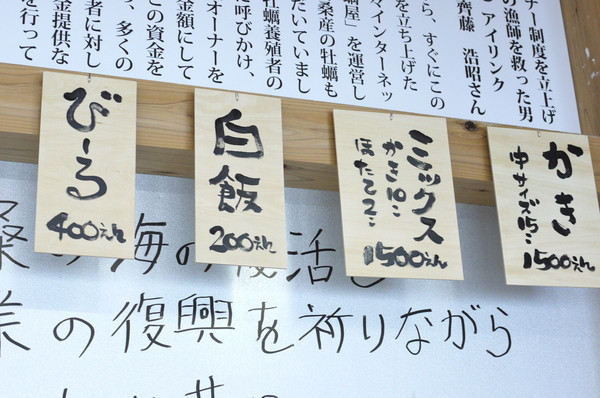 ナー制度を立上げ
の漁師を救った男
アイリンク
齊藤 浩昭さん
ら、すぐにこの
を立ち上げた
マインターネッ
屋」を運営し
桑産の牡蠣も
だいていまし
牡蠣養殖者の
に呼びかけ、
オーナーを
金額にして
この資金を
、多くの
者に対し
金提供な
を行って
かき
中サイズ15こ
1500えん
ミックス
かき10こ
ほたて2こ
1500えん
白飯
200えん
びーる
400えん
の海の復活
業の復興を祈りながら